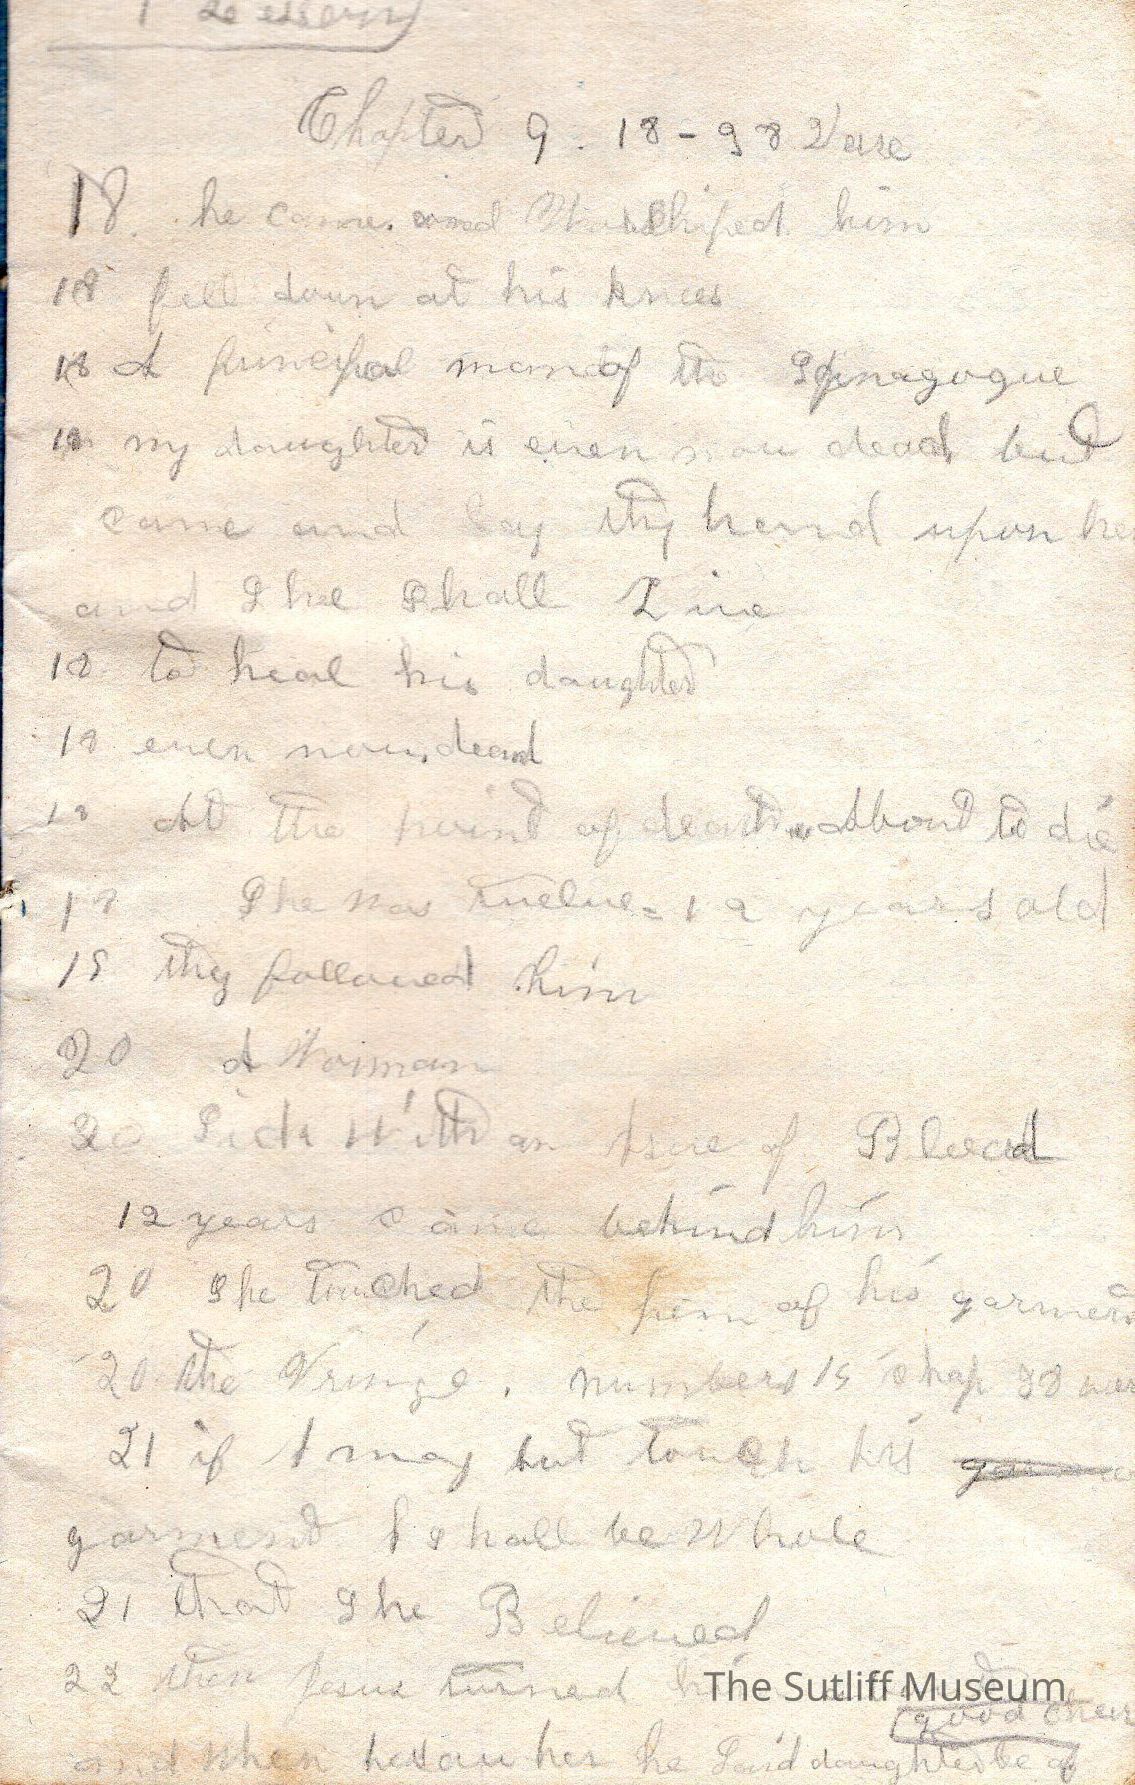 Lesson
Chapter 9. 18-38 Verse
18. he came and Worshiped him
18 fell down at his knees
18 A principal man of the Synagogue
18 my daughter is even now dead, but
came and lay thy hand upon her
and She Shall Live
18 to heal his daughter
18 even now dead
18 At the point of death About to die
18 She was twelve = 12 years old
19 thy followed him
20 A Woman
20 With an Isue of Blood
12 years came behind him
20 She touched the hem of his garment
20 the Vringe. numbers 15 chap 38
21 if I may but touch his
garment I shall be Whole
21 that She Believed
22 then Jesus turned
The Sutliff Museum
good cheer
and When he saw her he Said daughter be of